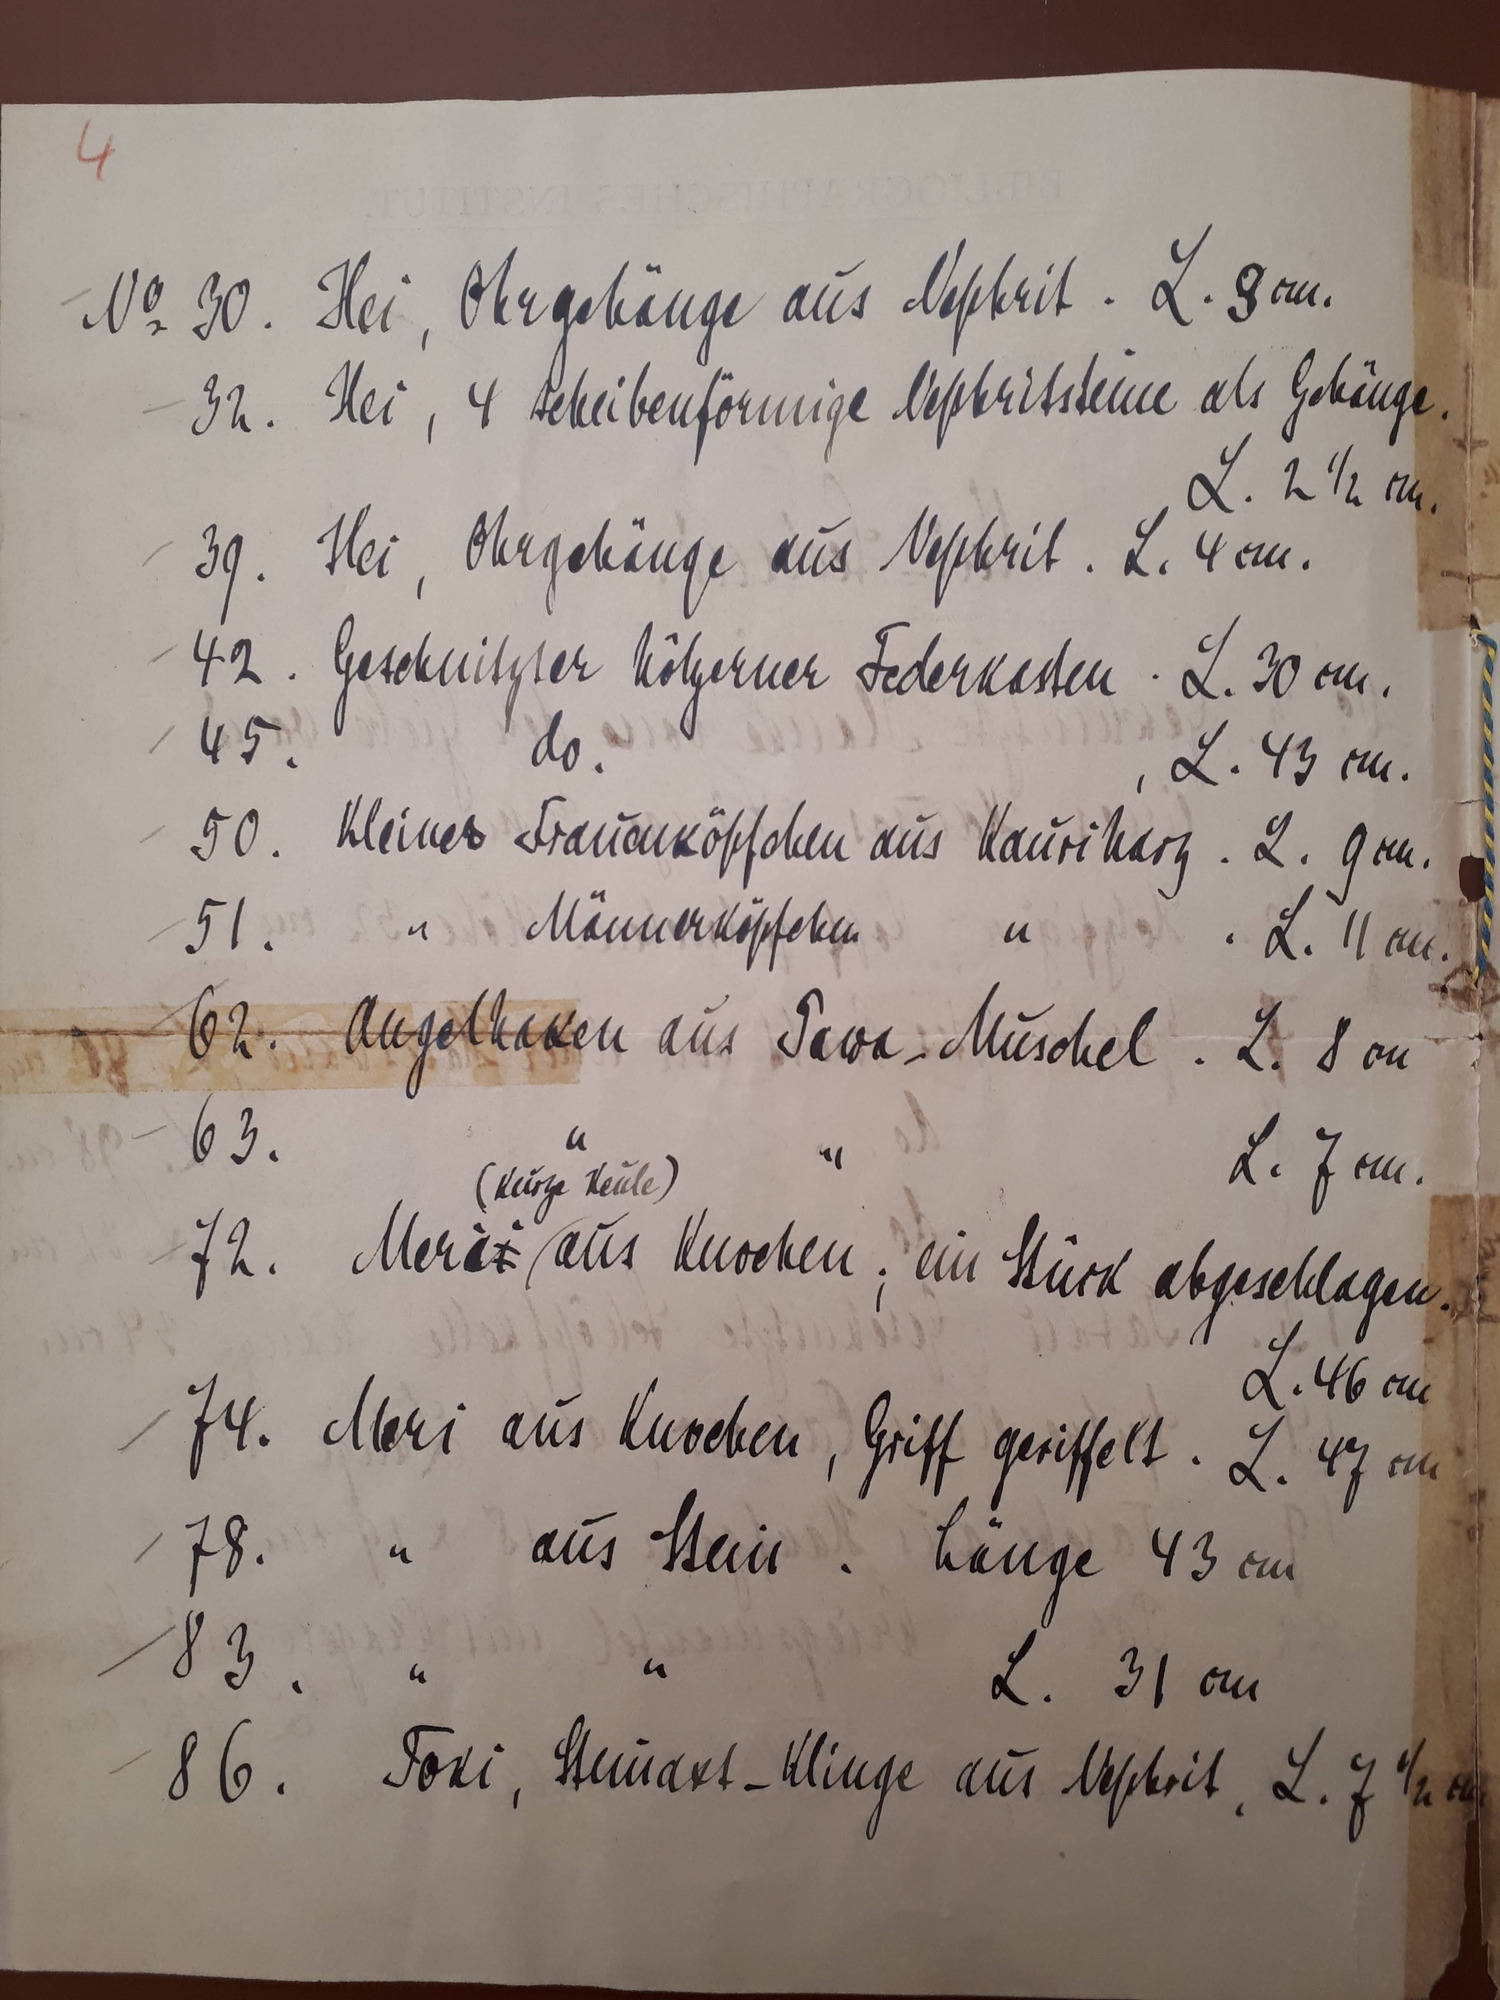 4
BIBLIOGRAPHISCHES INSTITUT.
No 30. Hei, Ohrgehänge aus Nephrit. L. 9 cm.
32. Hei, 4 scheibenförmige Nephritsteine als Gehänge.
L. 2 1/2 cm.
39. Hei, Ohrgehänge aus Nephrit. L. 4 cm.
42. Geschnitzter hölzerner Federkasten. L. 30 cm.
45. do. , L. 43 cm.
50. Kleines Frauenköpfchen aus Kauriharz. L. 9 cm.
51. " Männerköpfchen " . L. 11 cm.
62. Angelhaken aus Pawa-Muschel. L. 8 cm
63. " " L. 7 cm.
(Kurze Keule)
72. Meri aus Knochen; ein Stück abgeschlagen.
L. 46 cm
74. Meri aus Knochen, Griff geriffelt. L. 47 cm
78. " aus Stein. Länge 43 cm
83. " " L. 31 cm
86. Toki, Steinaxt-Klinge aus Nephrit, L. 7 1/2 cm